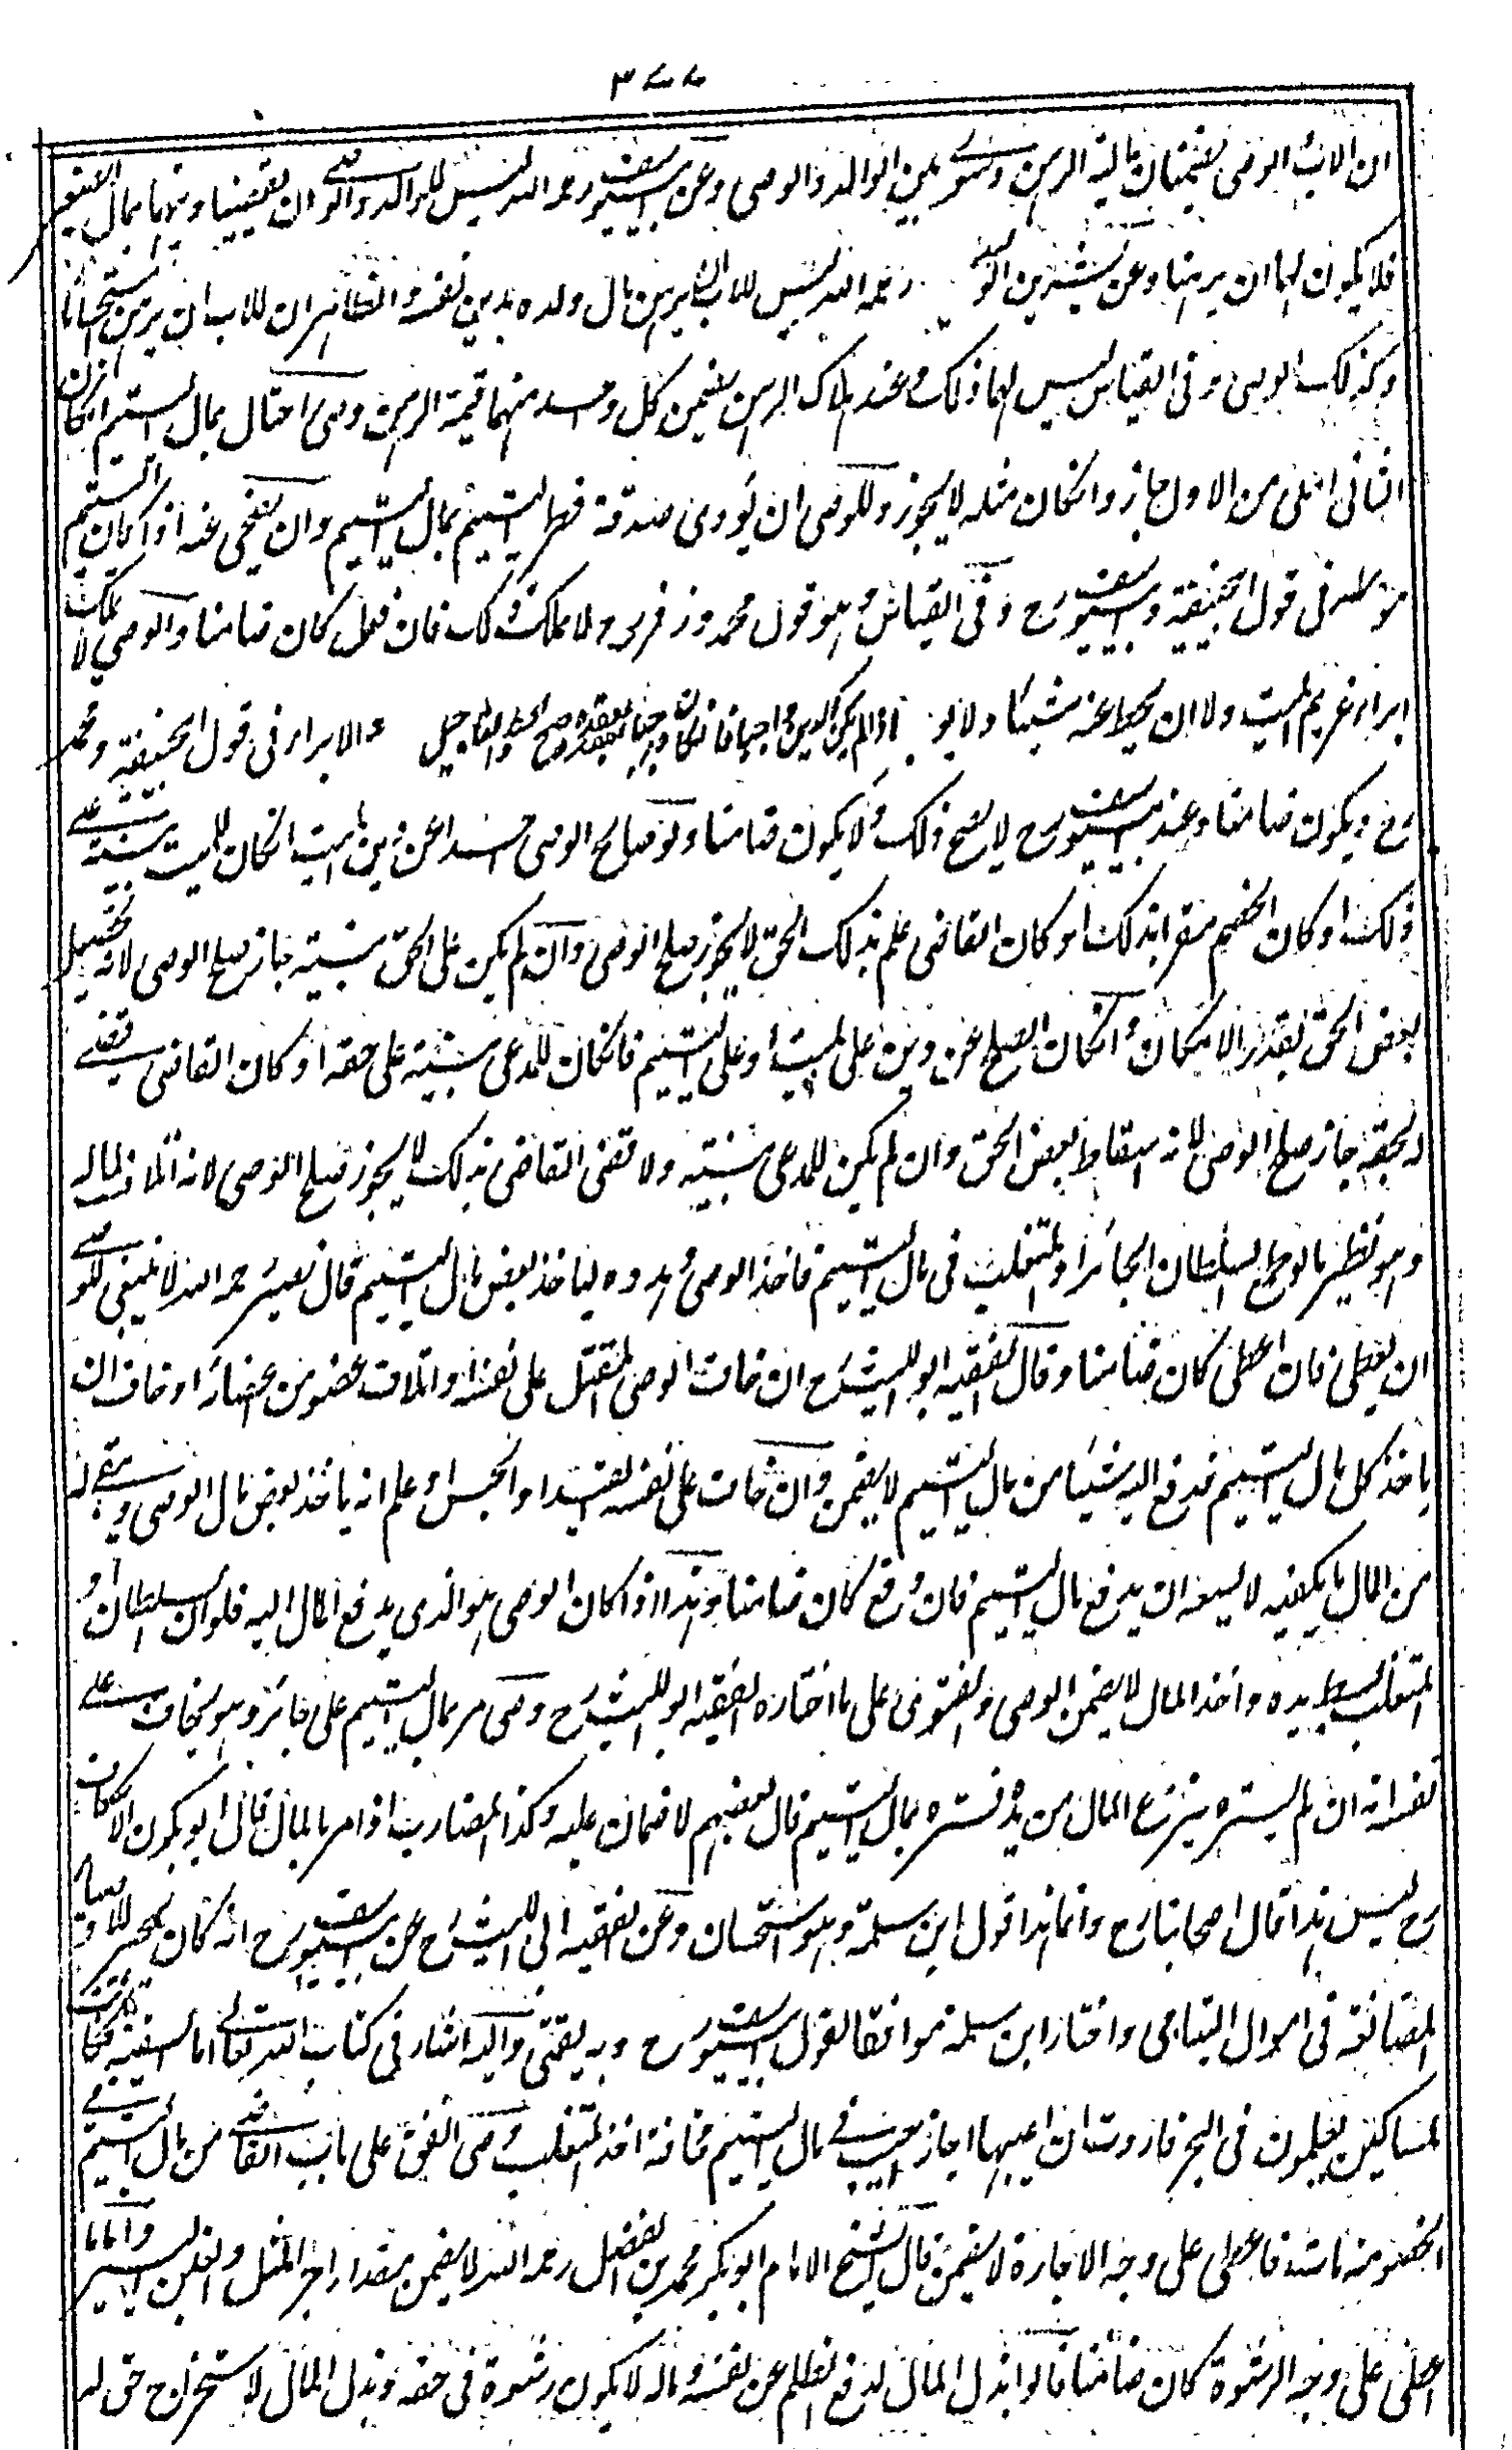 ٣٧٧
ان الاب والوصى يضمنان مالية الرهن وسوى بين الوالد والوصى وعن ابى يوسف رحمه الله ليس للوالد والوصى ان يقضيا دينهما بمال الصغير
فلا يكون لهما ان يرهنا وعن بشر بن الوليد رحمه الله ليس للاب ان يرهن مال ولده بدين نفسه والظاهر ان للاب ان يرهن استحسانا
وكذلك الوصى وفى القياس ليس لهما ذلك وعند هلاك الرهن يضمن كل واحد منهما قيمة الرهن وصى احتال بمال اليتيم انكان
الثانى املى من الاول جاز وانكان مثله لا يجوز وللوصى ان يؤدى صدقة فطر اليتيم بمال اليتيم وان يضحى عنه اذا كان اليتيم
موسرا فى قول ابى حنيفة وابى يوسف رح وفى القياس وهو قول محمد وزفر رح لا يملك ذلك فان فعل كان ضامنا والوصى لا يملك
ابراء غريم الميت ولا ان يحط عنه شيئا ولا يؤ اذا لم يكن الدين واجبا بعقده فانكان واجبا بعقده صح الحط والتاجيل والابراء فى قول ابى حنيفة ومحمد
رح ويكون ضامنا وعند ابى يوسف رح لا يصح ذلك ولا يكون ضامنا ولو صالح الوصى احدا عن دين الميت انكان للميت بينة على
ذلك او كان الخصم مقرا بذلك او كان القاضى علم بذلك الحق لا يجوز صلح الوصى وان لم يكن على الحق بينة جاز صلح الوصى لانه تحصيل
بعض الحق بقدر الامكان وانكان الصلح عن دين على الميت او على اليتيم فانكان للمدعى بينة على حقه او كان القاضى قضى
له بحقه جاز صلح الوصى لانه اسقاط بعض الحق وان لم يكن للمدعى بينة ولا قضى القاضى بذلك لا يجوز صلح الوصى لانه اتلاف لماله
وهو نظير ما لو طمع السلطان الجائر او المتغلب فى مال اليتيم فاخذ الوصى وهدده لياخذ بعض مال اليتيم قال نصير رحمه الله لا ينبغى للوصى
ان يعطى فان اعطى كان ضامنا وقال الفقيه ابو الليث رح ان خاف الوصى القتل على نفسه او اتلاف عضو من اعضائه او خاف ان
ياخذ كل مال اليتيم فدفع اليه شيئا من مال اليتيم لا يضمن وان خاف على نفسه القيد او الحبس او علم انه ياخذ بعض مال الوصى ويبقى له
من المال ما يكفيه لا يسعه ان يدفع مال اليتيم فان دفع كان ضامنا وهذا اذا كان الوصى هو الذى يدفع المال اليه فلو ان السلطان او
المتغلب بسط يده واخذ المال لا يضمن الوصى والفتوى على ما اختاره الفقيه ابو الليث رح وصى مر بمال اليتيم على جائر وهو يخاف على
نفسه انه ان لم يبره ينزع المال من يده فبره بمال اليتيم قال بعضهم لا ضمان عليه وكذا المضارب اذا مر بالمال قال ابو بكر الاسكاف
رح ليس هذا قال اصحابنا رح وانما هذا قول ابن سلمة وهو استحسان وعن الفقيه ابى الليث رح عن ابى يوسف رح انه كان يجيز للاوصياء
المصانعة فى اموال اليتامى واختار ابن سلمة موافقا لقول ابى يوسف رح وبه يفتى واليه اشار فى كتاب الله تعالى اما السفينة فكانت
لمساكين يعملون فى البحر فاردت ان اعيبها اجاز التعييب فى مال اليتيم مخافة اخذ المتغلب وصى انفق على باب القاضى من مال اليتيم
الخصومة فاعطى على وجه الاجارة لا يضمن قال الشيخ الامام ابو بكر محمد بن الفضل رحمه الله لا يضمن مقدار اجر المثل والغبن اليسير واما ما
اعطى على وجه الرشوة كان ضامنا قالوا بذل المال لدفع الظلم عن نفسه وماله لا يكون رشوة فى حقه وبذل المال لاستخراج حق له